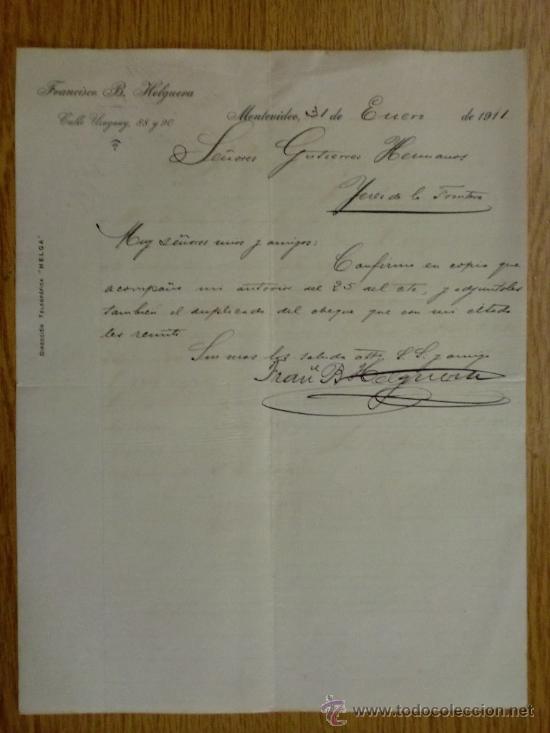 Francisco B. Helguera
Calle Uruguay, 88 y 90
Montevideo, 31 de Enero de 1911
Señores Gutierrez Hermanos
Jerez de la Frontera
DIRECCIÓN TELEGRÁFICA "HELGA"
Muy señores mios y amigos:
Confirmo en copia que
acompaño mi anterior del 25 del cte, y adjuntoles
también el duplicado del cheque que con mi citada
les remití
Sin mas los saluda atto. S. S. y amigo
Fran.co B Helguera
todocoleccion
www.todocoleccion.net